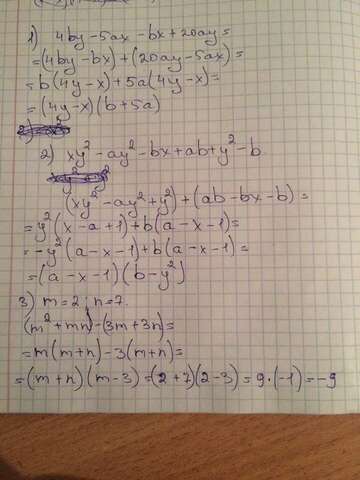 1) 4by-5ax-bx+20ay=
=(4by-bx)+(20ay-5ax)=
=b(4y-x)+5a(4y-x)=
=(4y-x)(b+5a)
2) xy²-ay²-bx+ab+y²-b
(xy²-ay²+y²)+(ab-bx-b)=
=y²(x-a+1)+b(a-x-1)=
=-y²(a-x-1)+b(a-x-1)=
=(a-x-1)(b-y²)
3) m=2; n=7.
(m²+mn)-(3m+3n)=
=m(m+n)-3(m+n)=
=(m+n)(m-3)=(2+7)(2-3)=9·(-1)=-9